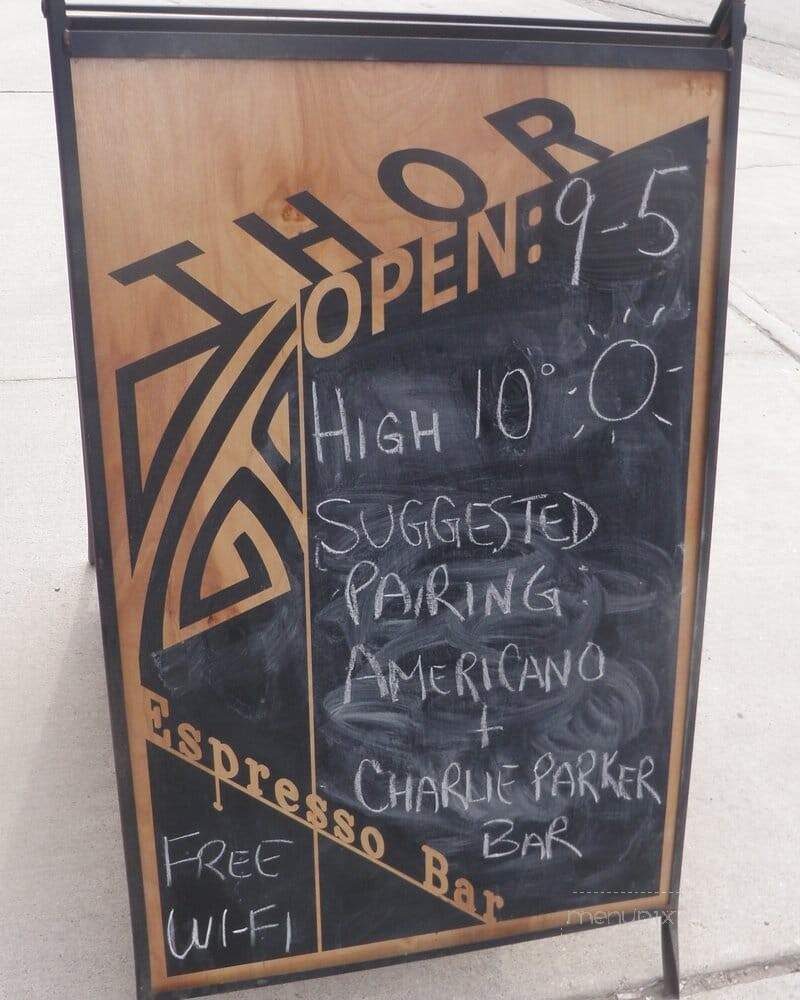 THOR
OPEN: 9-5
HIGH 10°
SUGGESTED
PAIRING:
AMERICANO
+
CHARLIE PARKER
BAR
Espresso Bar
FREE
WI-FI
menupix